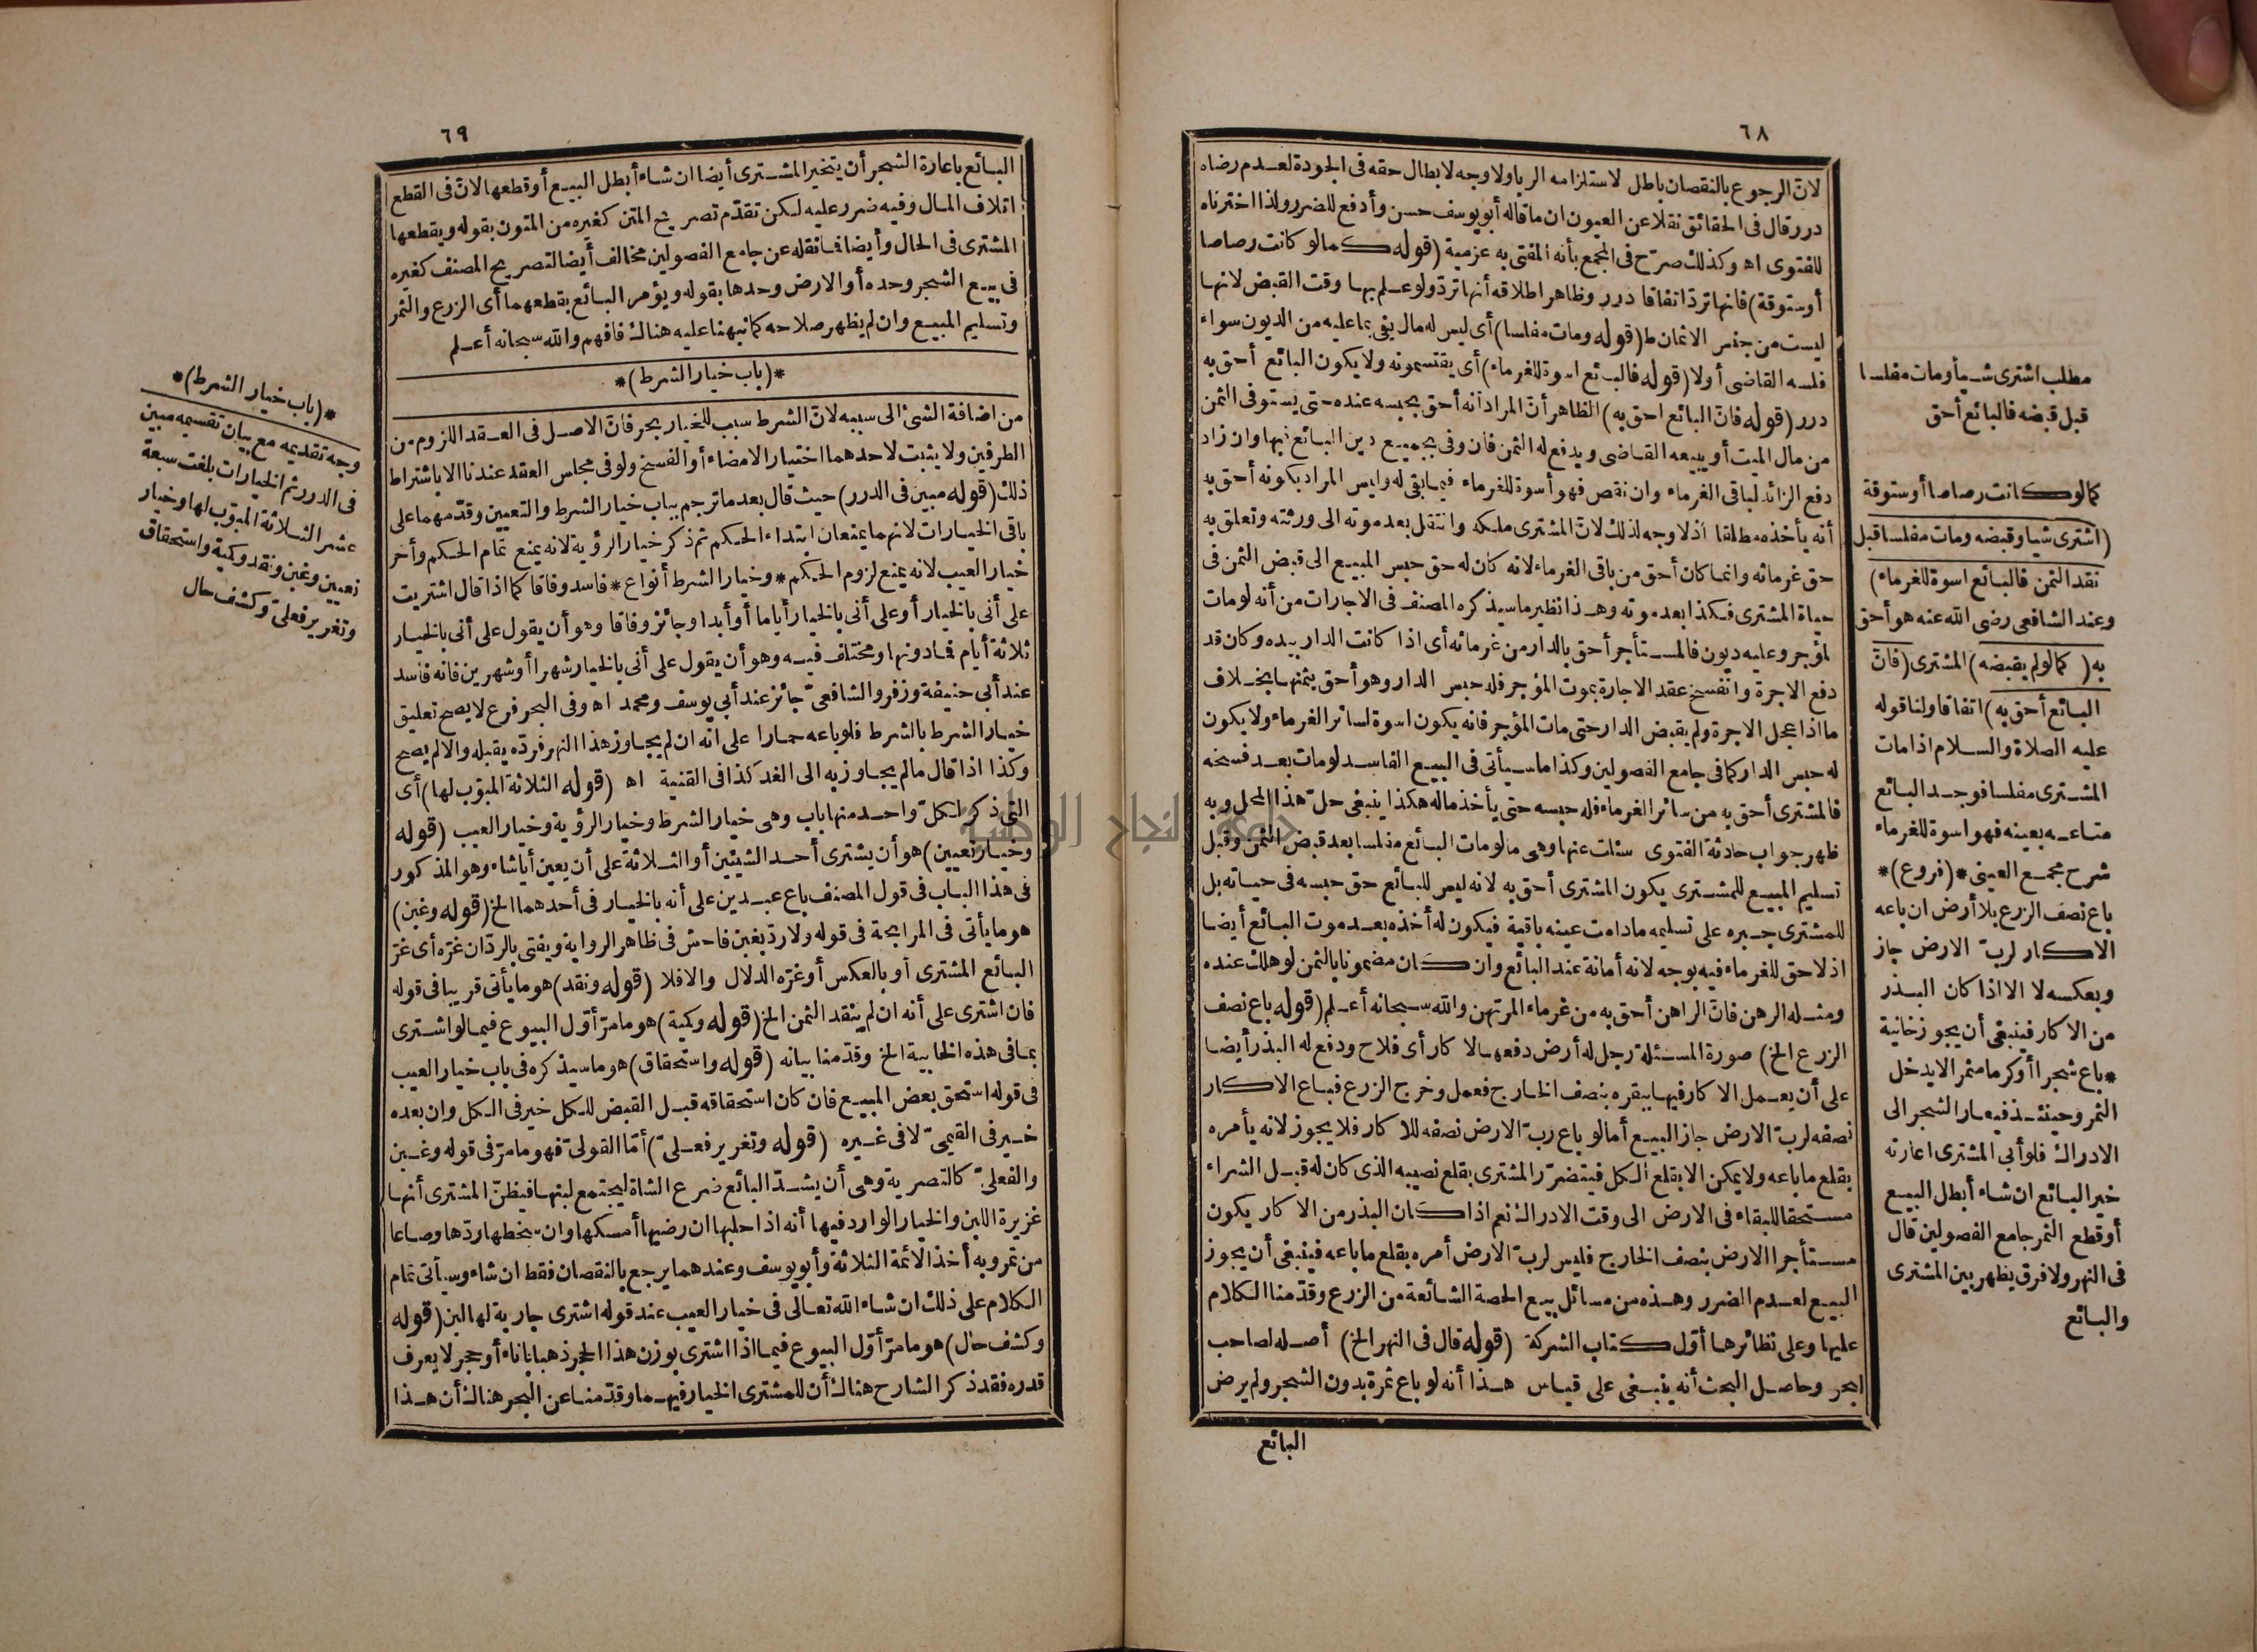 ٦٨
لان الرجوع بالنقصان باطل لاستلزامه الربا ولا وجه لابطال حقه فى الجودة لعدم رضاه
درر قال فى الحقائق نقلا عن العيون ان ما قاله أبو يوسف حسن وأدفع للضرر ولذا اخترناه
للفتوى اه وكذلك صرّح فى المجمع بأنه المفتى به عزمية (قوله كمالو كانت رصاصا
أوستوقة) فانها تردّ اتفاقا درر وظاهر اطلاقه أنها تردّ ولو علم بها وقت القبض لانها
ليست من جنس الاثمان ط (قوله ومات مفلسا) أى ليس له مال يفى بما عليه من الديون سواء
فلسه القاضى أولا (قوله فالبائع اسوة للغرماء) أى يقتسمونه ولا يكون البائع أحق به
درر (قوله فان البائع احق به) الظاهر أن المراد أنه أحق بحبسه عنده حتى يستوفى الثمن
من مال الميت أو يبيعه القاضى ويدفع له الثمن فان وفى بجميع دين البائع فبها وان زاد
دفع الزائد لباقى الغرماء وان نقص فهو أسوة للغرماء فيما بقى له وليس المراد بكونه أحق به
أنه يأخذه مطلقا اذ لا وجه لذلك لان المشترى ملكه وانتقل بعد موته الى ورثته وتعلق به
حق غرمائه وانما كان أحق من باقى الغرماء لانه كان له حق حبس المبيع الى قبض الثمن فى
حياة المشترى فكذا بعد موته وهذا نظير ما سيذكره المصنف فى الاجارات من أنه لو مات
المؤجر وعليه ديون فالمستأجر أحق بالدار من غرمائه أى اذا كانت الدار بيده وكان قد
دفع الاجرة وانفسخ عقد الاجارة بموت المؤجر فله حبس الدار وهو أحق بثمنها بخلاف
ما اذا عجل الاجرة ولم يقبض الدار حتى مات المؤجر فانه يكون اسوة لسائر الغرماء ولا يكون
له حبس الدار كما فى جامع الفصولين وكذا ما سيأتى فى البيع الفاسد لو مات بعد فسخه
فالمشترى أحق به من سائر الغرماء فله حبسه حتى يأخذ ماله هكذا ينبغى حلّ هذا المحل وبه
ظهر جواب حادثة الفتوى سئلت عنها وهى ما لو مات البائع مفلسا بعد قبض الثمن وقبل
تسليم المبيع للمشترى يكون المشترى أحق به لانه ليس للبائع حق حبسه فى حياته بل
للمشترى جبره على تسليمه مادامت عينه باقية فيكون له أخذه بعد موت البائع أيضا
اذ لا حق للغرماء فيه بوجه لانه أمانة عند البائع وان كان مضمونا بالثمن لو هلك عنده
ومثله الرهن فان الراهن أحق به من غرماء المرتهن والله سبحانه أعلم (قوله باع نصف
الزرع الخ) صورة المسئلة رجل له أرض دفعها لاكار أى فلاح ودفع له البذر أيضا
على أن يعمل الاكار فيها ببقره بنصف الخارج فعمل وخرج الزرع فباع الاكار
نصفه لربّ الارض جاز البيع أما لو باع ربّ الارض نصفه للاكار فلا يجوز لانه يأمره
بقلع ما باعه ولا يمكن الا بقلع الكل فيتضرّر المشترى بقلع نصيبه الذى كان له قبل الشراء
مستحقا للبقاء فى الارض الى وقت الادراك نعم اذا كان البذر من الاكار يكون
مستأجرا الارض بنصف الخارج فليس لربّ الارض أمره بقلع ما باعه فينبغى أن يجوز
البيع لعدم الضرر وهذه من مسائل بيع الحصة الشائعة من الزرع وقدّمنا الكلام
عليها وعلى نظائرها أوّل كتاب الشركة (قوله قال فى النهر الخ) أصله لصاحب
البحر وحاصل البحث أنه ينبغى على قياس هذا أنه لو باع ثمرة بدون الشجر ولم يرض
البائع
مطلب اشترى شيأ ومات مفلسا
قبل قبضه فالبائع أحق
كمالو كانت رصاصا أوستوقة
(اشترى شيا وقبضه ومات مفلسا قبل
نقد الثمن فالبائع اسوة للغرماء)
وعند الشافعى رضى الله عنه هو أحق
به (كمالو لم يقبضه) المشترى (فان
البائع أحق به) اتفاقا ولنا قوله
عليه الصلاة والسلام اذا مات
المشترى مفلسا فوجد البائع
متاعه بعينه فهو اسوة للغرماء
شرح مجمع العينى *(فروع)*
باع نصف الزرع بلا أرض ان باعه
الاكار لربّ الارض جاز
وبعكسه لا الا اذا كان البذر
من الاكار فينبغى أن يجوز خانية
*باع شجرا أو كرما مثمر الا يدخل
الثمر وحينئذ فيعار الشجر الى
الادراك فلو أبى المشترى اعارته
خير البائع ان شاء أبطل البيع
أو قطع الثمر جامع الفصولين قال
فى النهر ولا فرق يظهر بين المشترى
والبائع
٦٩
البائع باعارة الشجر أن يتخير المشترى أيضا ان شاء أبطل البيع أو قطعها لان فى القطع
اتلاف المال وفيه ضرر عليه لكن تقدّم تصريح المتن كغيره من المتون بقوله ويقطعها
المشترى فى الحال وأيضا فما نقله عن جامع الفصولين مخالف أيضا لتصريح المصنف كغيره
فى بيع الشجر وحده أو الارض وحدها بقوله ويؤمر البائع بقطعهما أى الزرع والثمر
وتسليم المبيع وان لم يظهر صلاحه كما نبهنا عليه هنالك فافهم والله سبحانه أعلم
*(باب خيار الشرط)*
من اضافة الشئ الى سببه لان الشرط سبب للخيار بحر فان الاصل فى العقد اللزوم من
الطرفين ولا يثبت لاحدهما اختيار الامضاء أو الفسخ ولو فى مجلس العقد عندنا الا باشتراط
ذلك (قوله مبين فى الدرر) حيث قال بعدما ترجم بباب خيار الشرط والتعيين وقدّمهما على
باقى الخيارات لانهما يمنعان ابتداء الحكم ثم ذكر خيار الرؤية لانه يمنع تمام الحكم وأخر
خيار العيب لانه يمنع لزوم الحكم * وخيار الشرط أنواع * فاسد وفاقا كما اذا قال اشتريت
على أنى بالخيار أو على أنى بالخيار أياما أو أبدا وجائز وفاقا وهو أن يقول على أنى بالخيار
ثلاثة أيام فما دونها ومختلف فيه وهو أن يقول على أنى بالخيار شهرا أو شهرين فانه فاسد
عند أبى حنيفة وزفر والشافعىّ جائز عند أبى يوسف ومحمد اه وفى البحر فرع لا يصح تعليق
خيار الشرط بالشرط فلو باعه حمارا على انه ان لم يجاوز هذا النهر فردّه يقبله والا لم يصح
وكذا اذا قال مالم يجاوز به الى الغد كذا فى القنية اه (قوله الثلاثة المبوّب لها) أى
التى ذكر لكلّ واحد منها باب وهى خيار الشرط وخيار الرؤية وخيار العيب (قوله
وخيار تعيين) هو أن يشترى أحد الشيئين أو الثلاثة على أن يعين أيا شاء وهو المذكور
فى هذا الباب فى قول المصنف باع عبدين على أنه بالخيار فى أحدهما الخ (قوله وغبن)
هو ما يأتى فى المرابحة فى قوله ولا ردّ بغبن فاحش فى ظاهر الرواية ويفتى بالردّ ان غرّه أى غرّ
البائع المشترى أو بالعكس أو غرّه الدلال والا فلا (قوله ونقد) هو ما يأتى قريبا فى قوله
فان اشترى على أنه ان لم ينقد الثمن الخ (قوله وكمية) هو ما مرّ أوّل البيوع فيما لو اشترى
بما فى هذه الخابية الخ وقدّمنا بيانه (قوله واستحقاق) هو ما سيذكره فى باب خيار العيب
فى قوله استحق بعض المبيع فان كان استحقاقه قبل القبض للكل خير فى الكل وان بعده
خير فى القيمىّ لا فى غيره (قوله وتغرير فعلىّ) أمّا القولىّ فهو ما مرّ فى قوله وغبن
والفعلىّ كالتصرية وهى أن يشدّ البائع ضرع الشاة ليجتمع لبنها فيظنّ المشترى أنها
غزيرة اللبن والخيار الوارد فيها أنه اذا حلبها ان رضيها أمسكها وان سخطها ردّها وصاعا
من تمر وبه أخذ الائمة الثلاثة وأبو يوسف وعندهما يرجع بالنقصان فقط ان شاء وسيأتى تمام
الكلام على ذلك ان شاء الله تعالى فى خيار العيب عند قوله اشترى جارية لها لبن (قوله
وكشف حال) هو ما مرّ أوّل البيوع فيما اذا اشترى بوزن هذا الحجر ذهبا باناء أو حجر لا يعرف
قدره فقد ذكر الشارح هنالك أن للمشترى الخيار فيهما وقدّمنا عن البحر هنالك أن هذا
*(باب خيار الشرط)*
وجه تقديمه مع بيان تقسيمه مبين
فى الدرر ثم الخيارات بلغت سبعة
عشر الثلاثة المبوّب لها وخيار
تعيين وغبن ونقد وكمية واستحقاق
وتغرير فعلىّ وكشف حال
جامعة النجاح الوطنية